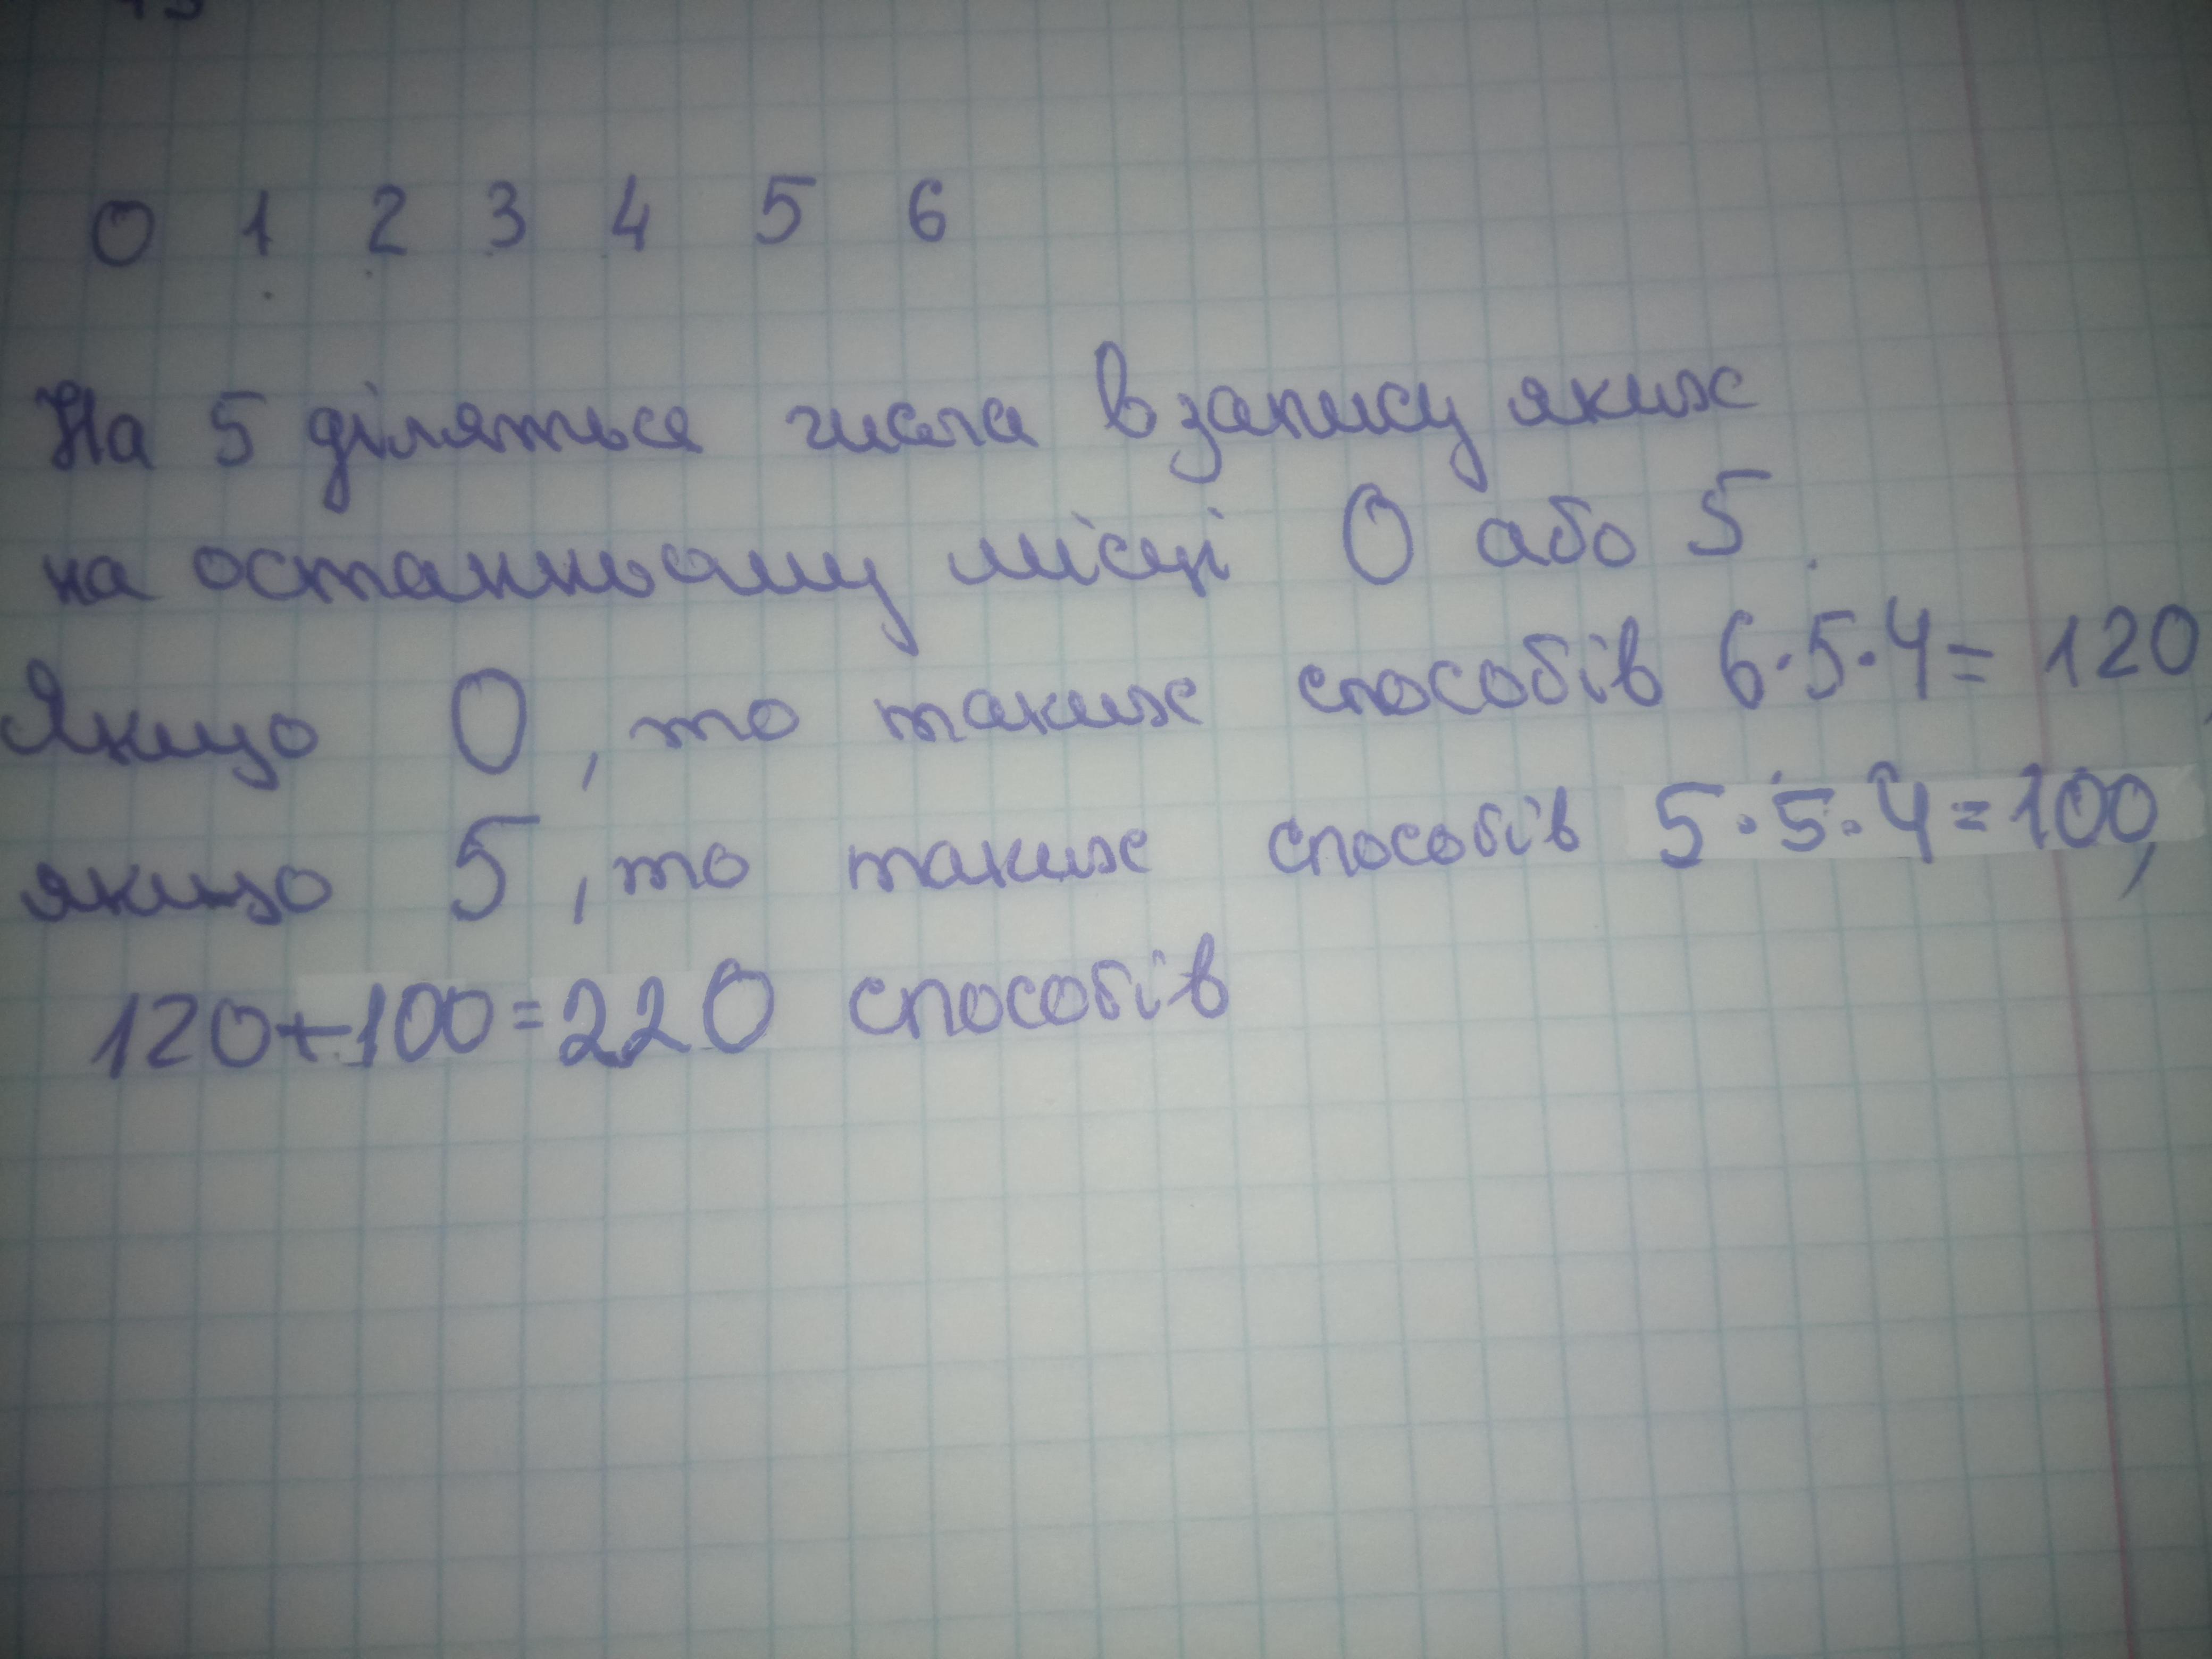 0 1 2 3 4 5 6
На 5 діляться числа в запису яких
на останньому місці 0 або 5.
Якщо 0, то таких способів 6·5·4=120,
якщо 5, то таких способів 5·5·4=100,
120+100=220 способів